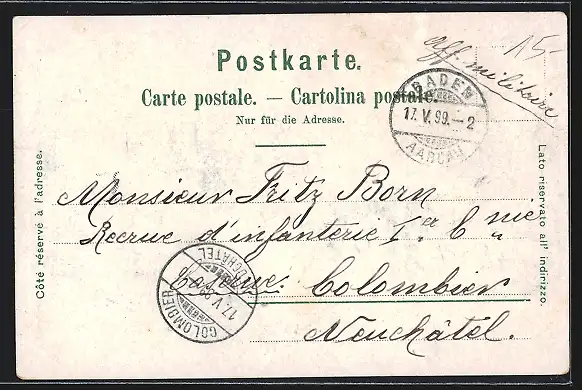 aff. militaire
15-
Postkarte.
Carte postale. — Cartolina postale.
Nur für die Adresse.
BADEN
17. V. 99. — 2
AARGAU
Côté réservé à l'adresse.
Lato riservato all' indirizzo.
Monsieur Fritz Born
Recrue d'infanterie I.er Cnie
Caserne. Colombier
Neuchâtel.
COLOMBIER
17. V. 99
NEUCHÂTEL